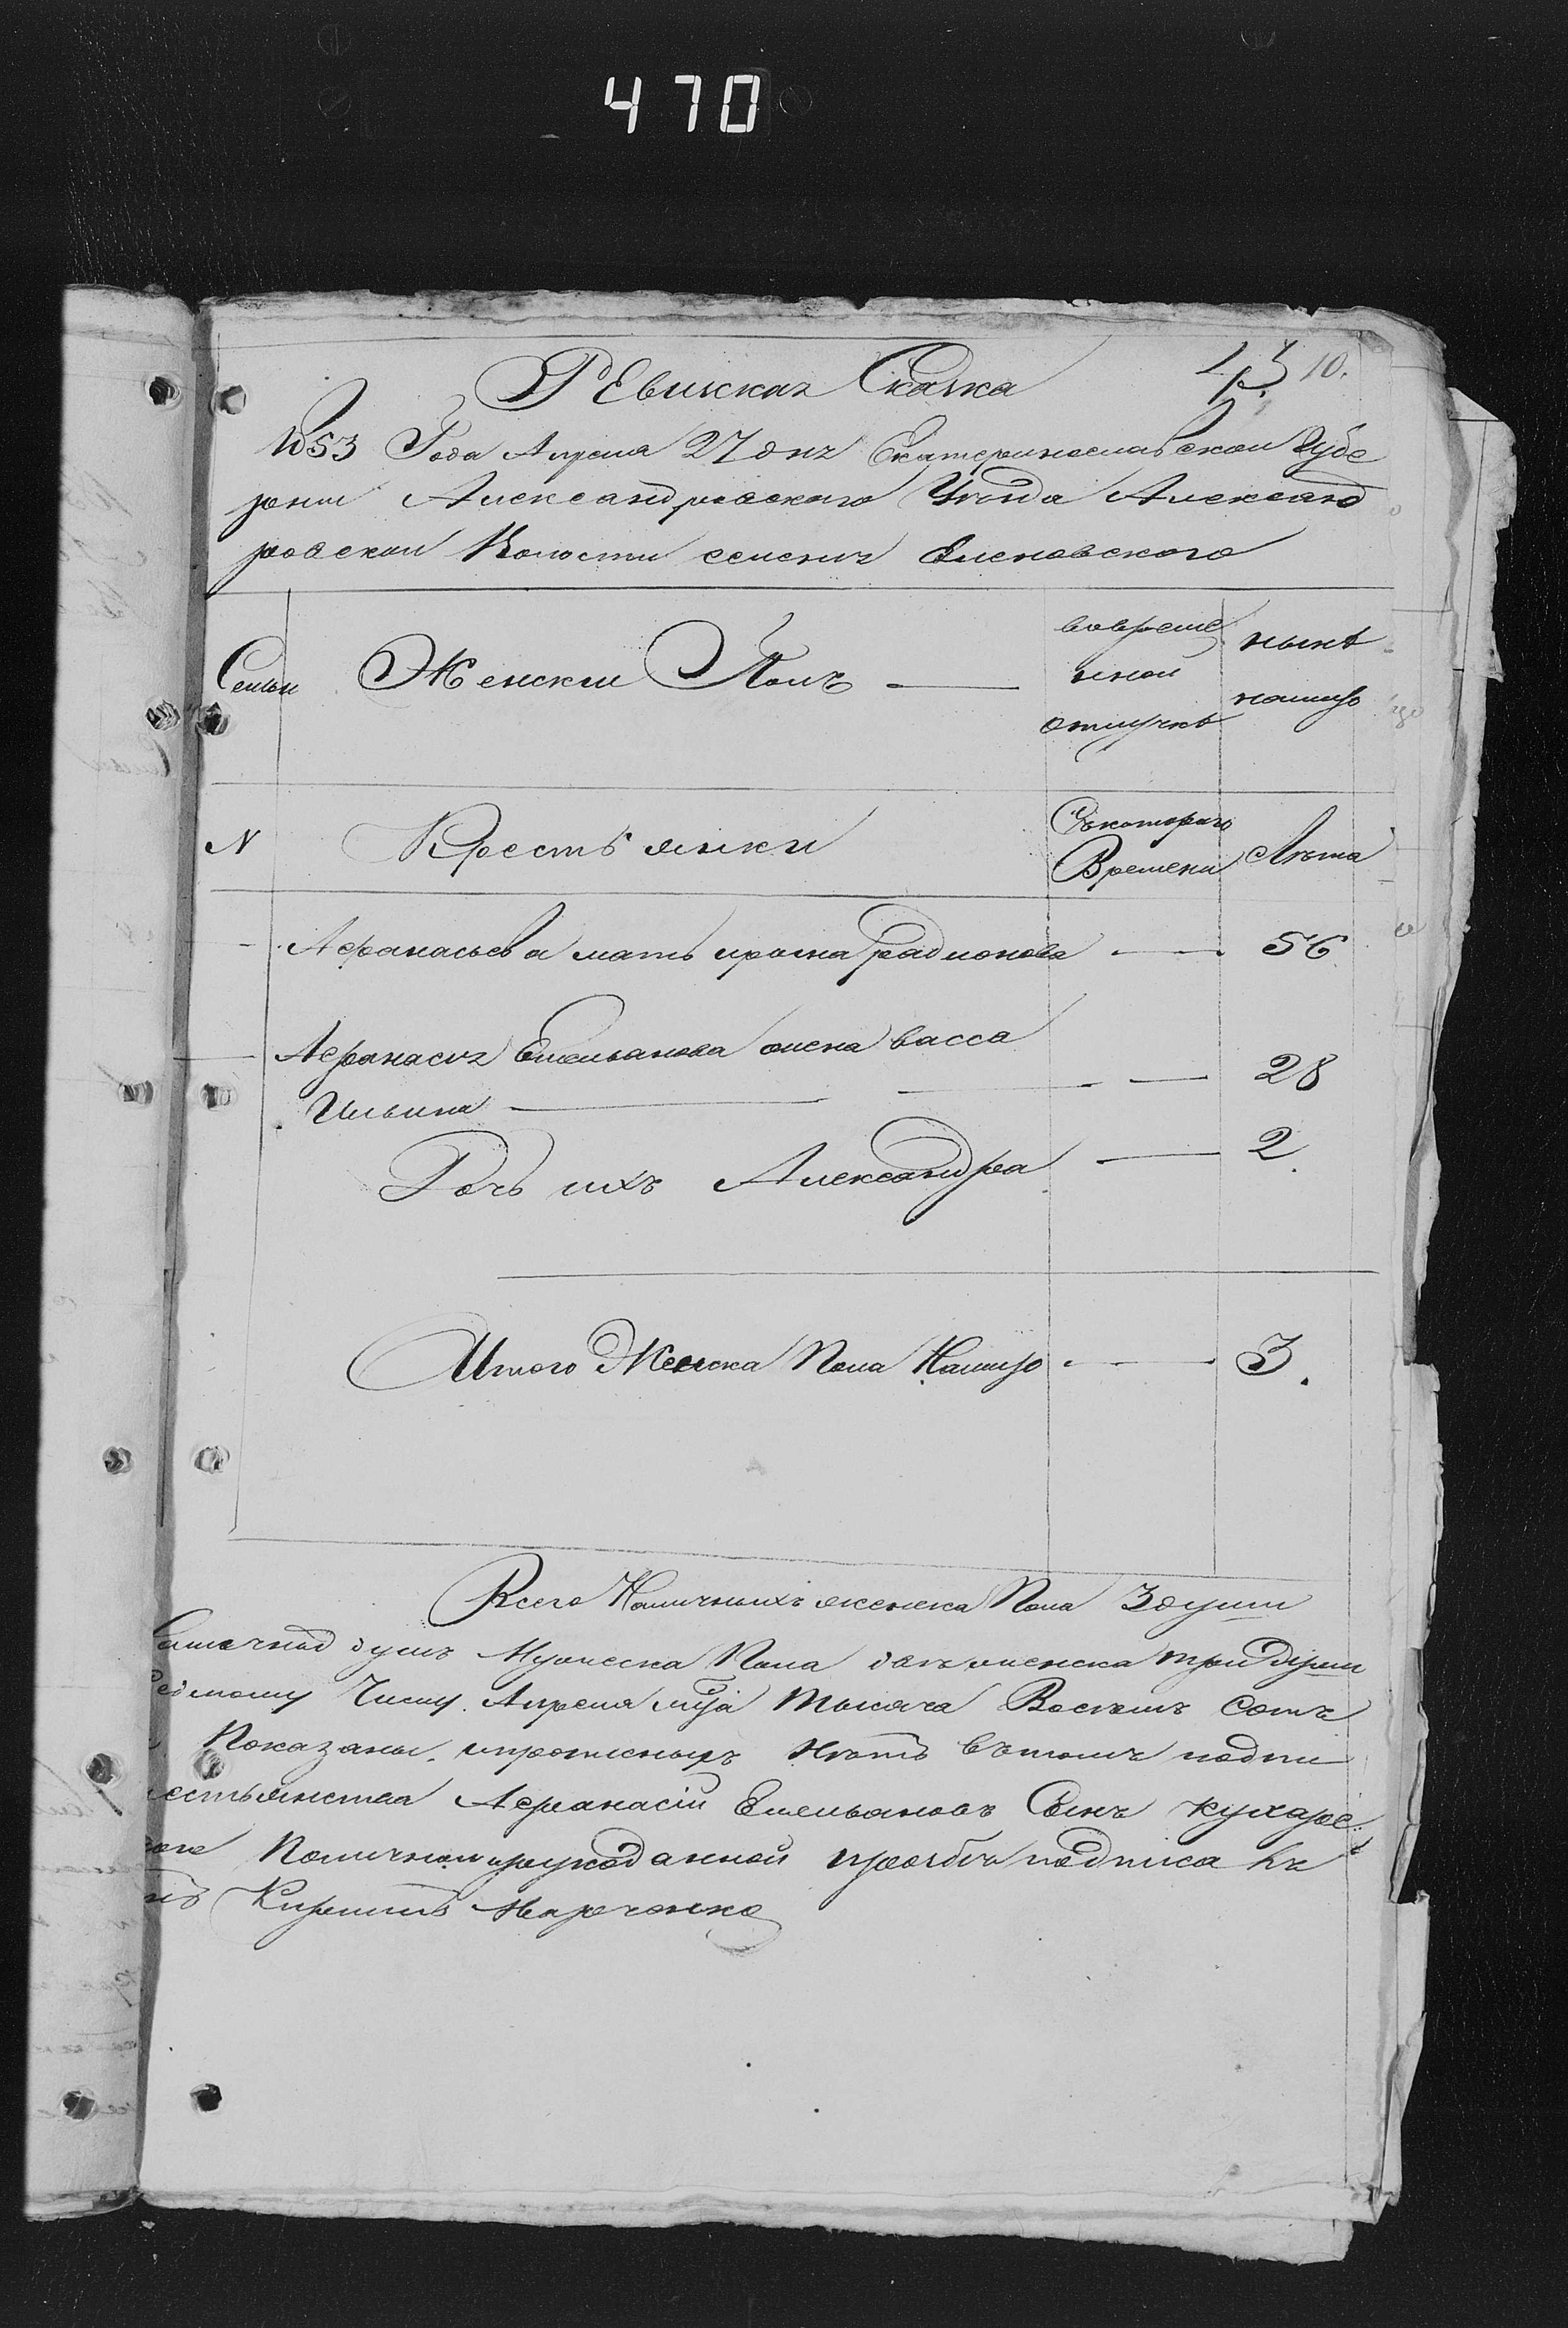 470
РЕвискаꙗ Сказка
10.
1853 Года Апреля 27 дня Екатеринославскои Губе
рнии Александровскаго Уезда Александ
ровскои Волости селения Еленовского
Семьи
Женскии Полъ
вовреме
нной
отлучкѣ
нынѣ
налицо
N
Крестьянки
Скотораго
Времени
Лѣта
Афанасьева мать ирина радионова — 56
Афанасия Емельянова жена васса
Ильина — 28
Дочь ихъ Александра — 2.
Итого Женска Пола Налицо — 3.
Всего Наличныхъ женска Пола 3 души
душъ Мужеска Пола двѣ женска три души
едмому Числу Апреля мца тысяча Восемъ Сотъ
Показаны. ипрописныхъ Нѣтъ втомъ подпи
естьянства Афанасiй Емельяновъ Сынъ кухаре
Поличной ирукоданной прозбѣ подписа
Кирилъ Марченко